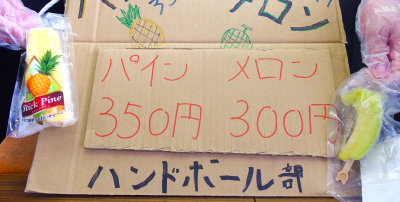 パイン メロン
350円 300円
ハンドボール部
Stick Pine